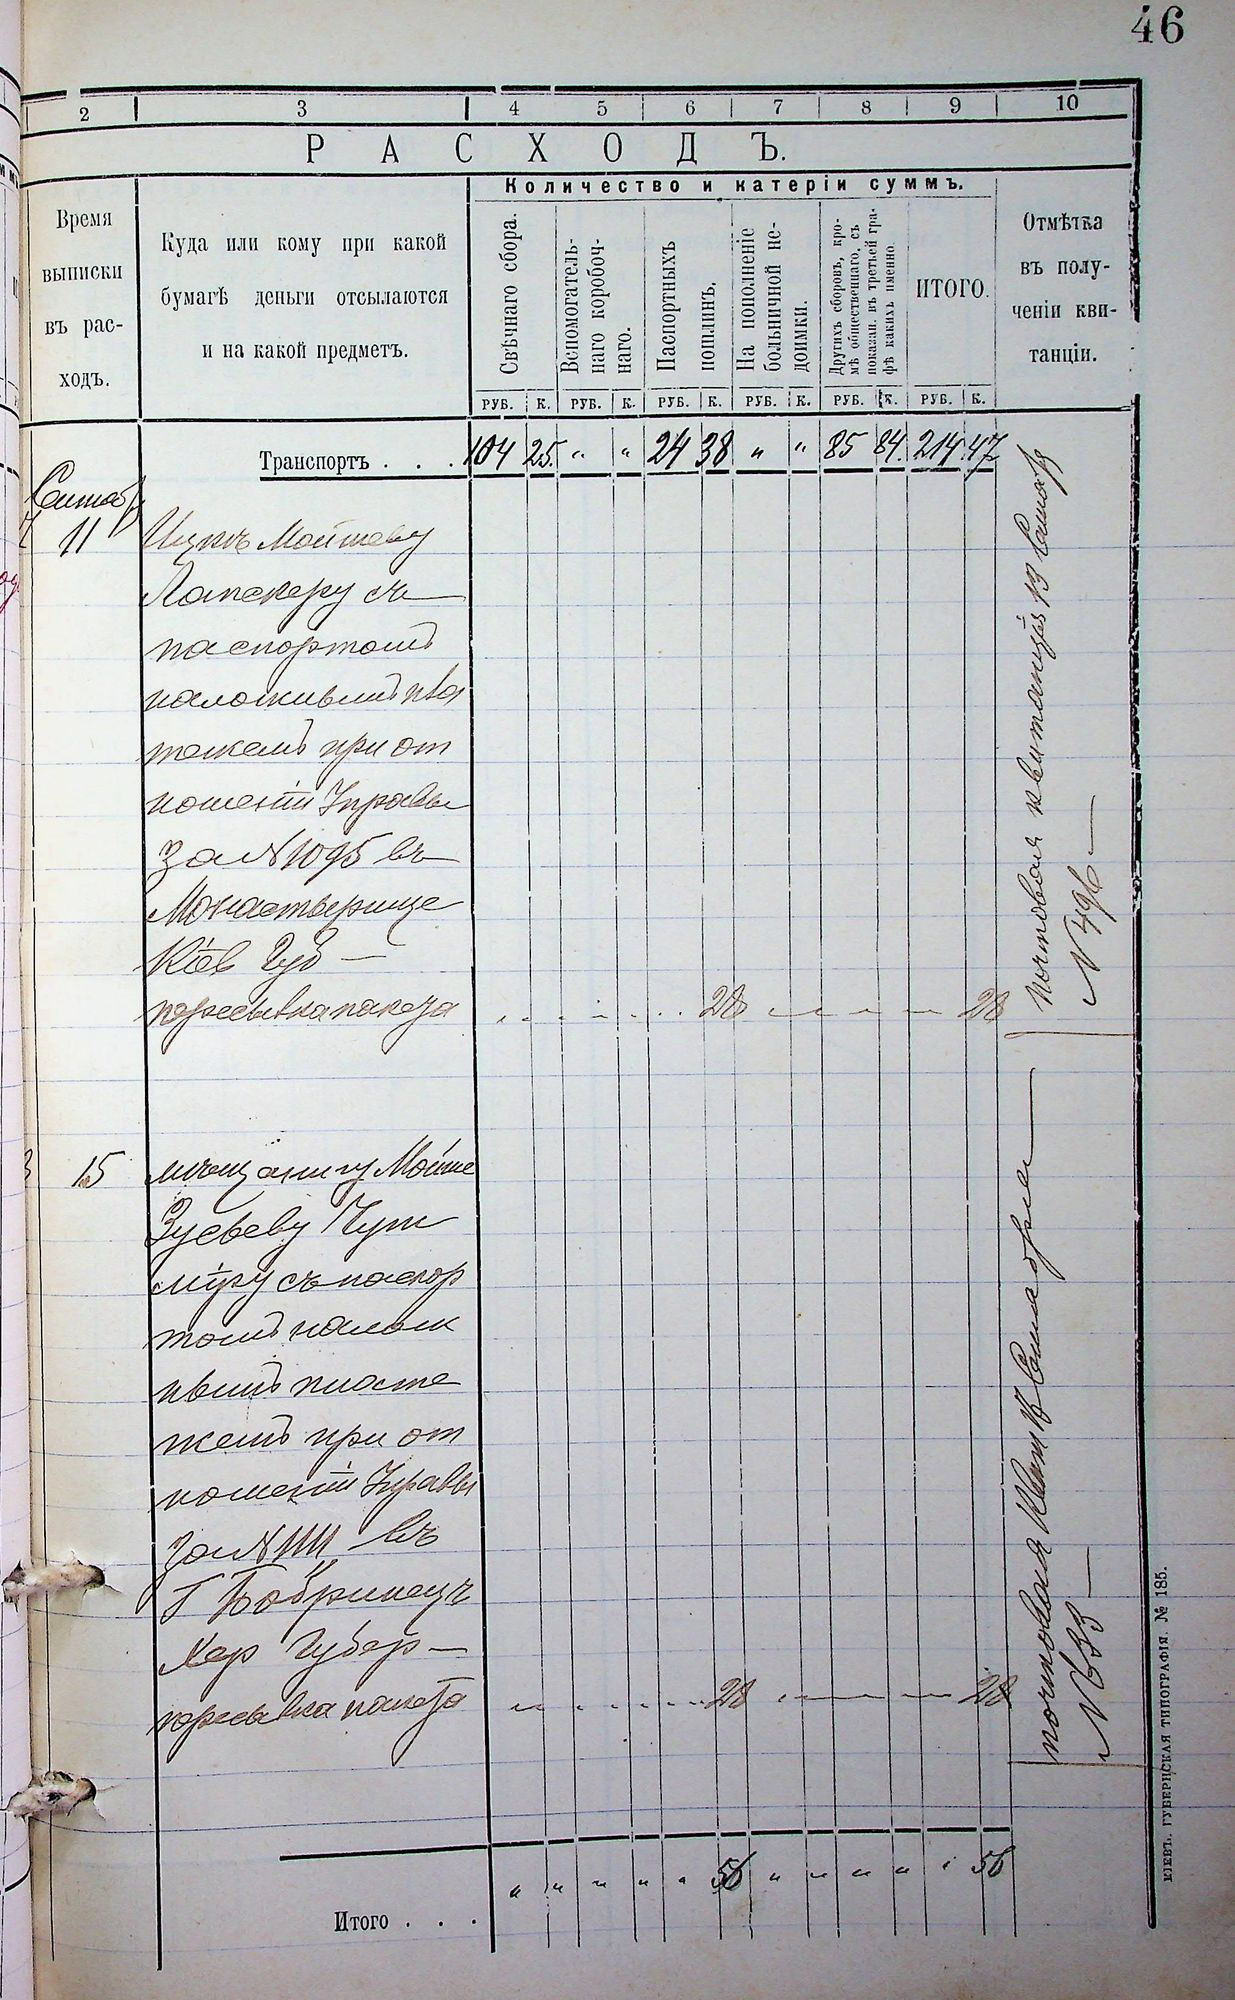 46
2 3 4 5 6 7 8 9 10
РАСХОДЪ.
Время
выписки
въ рас-
ходъ.
Куда или кому при какой
бумагѣ деньги отсылаются
и на какой предметъ.
Количество и катерiи суммъ.
Свѣчнаго сбора.
Вспомогатель-
наго коробоч-
наго.
Паспортныхъ
пошлинъ.
На пополненiе
больничной не-
доимки.
Другихъ сборовъ, кро-
мѣ общественнаго, съ
показан. въ третьей гра-
фѣ какихъ именно.
ИТОГО.
Отмѣтка
въ полу-
ченiи кви-
танцiи.
РУБ. К. РУБ. К. РУБ. К. РУБ. К. РУБ. К. РУБ. К.
Транспортъ . . . 104 25 " " 24 38 " " 85 84 214 47
Сентяб
11
Мойшеву
Лапскеру съ
паспортомъ
наложнымъ пла
тежемъ при от
ношенiи Управы
за №1095 въ
Монастырище
Кiев Губ —
пересылка пакета 28 28
почтовая квитанцiя 13 Сентяб
№ 496 —
15 мѣщанину Мойше
Зусьеву
съ паспор
томъ налож
нымъ плате
жемъ при от
ношенiи Управы
за №1111 въ
Г Бобринецъ
Хер Губер —
пересылка пакета 28 28
почтовая Квит Сентября —
№ 633 —
Итого . . . " " " " " 56 " " " " " 56
КIЕВЪ. ГУБЕРНСКАЯ ТИПОГРАФIЯ. № 185.